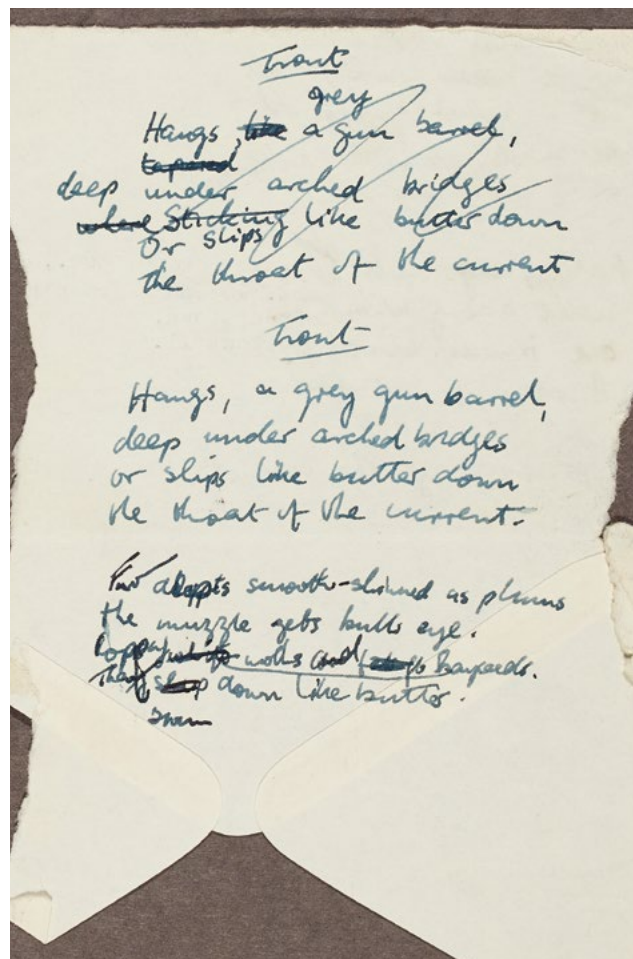 Trout
grey
Hangs, like a gun barrel,
tapered
deep under arched bridges
where Sticking like butter down
Or slips
the throat of the current
Trout
Hangs, a grey gun barrel,
deep under arched bridges
or slips like butter down
the throat of the current.
depths smooth-skinned as plums
the muzzle gets bulls eye.
moths and
down like butter.